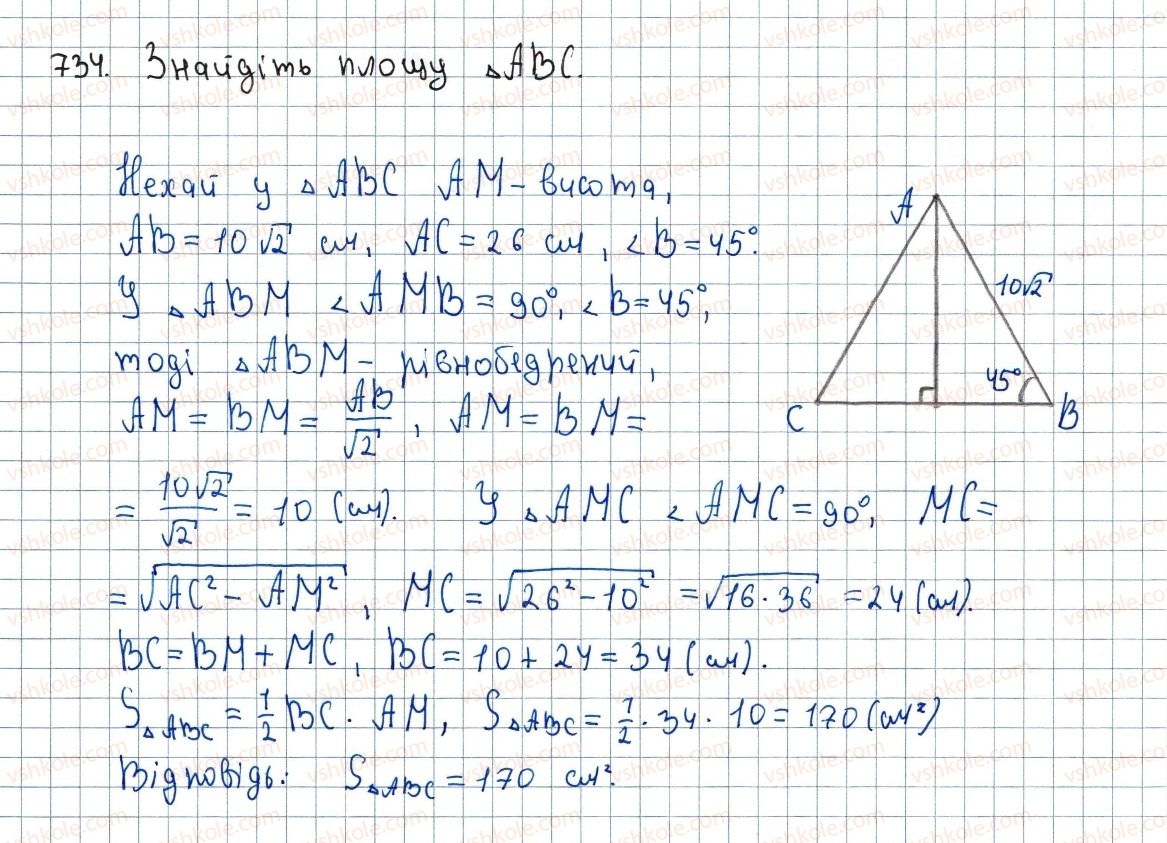 734. Знайдіть площу △ABC.
Нехай у △ABC AM – висота,
AB = 10√2 см, AC = 26 см, ∠B = 45°.
У △ABM ∠AMB = 90°, ∠B = 45°,
тоді △ABM – рівнобедрений,
AM = BM = AB/√2, AM = BM =
= 10√2/√2 = 10 (см). У △AMC ∠AMC = 90°, MC =
= √(AC² – AM²), MC = √(26² – 10²) = √(16 · 36) = 24 (см).
BC = BM + MC, BC = 10 + 24 = 34 (см).
S△ABC = 1/2 BC · AM, S△ABC = 1/2 · 34 · 10 = 170 (см²)
Відповідь: S△ABC = 170 см².
A
10√2
45°
C
B
vshkole.com